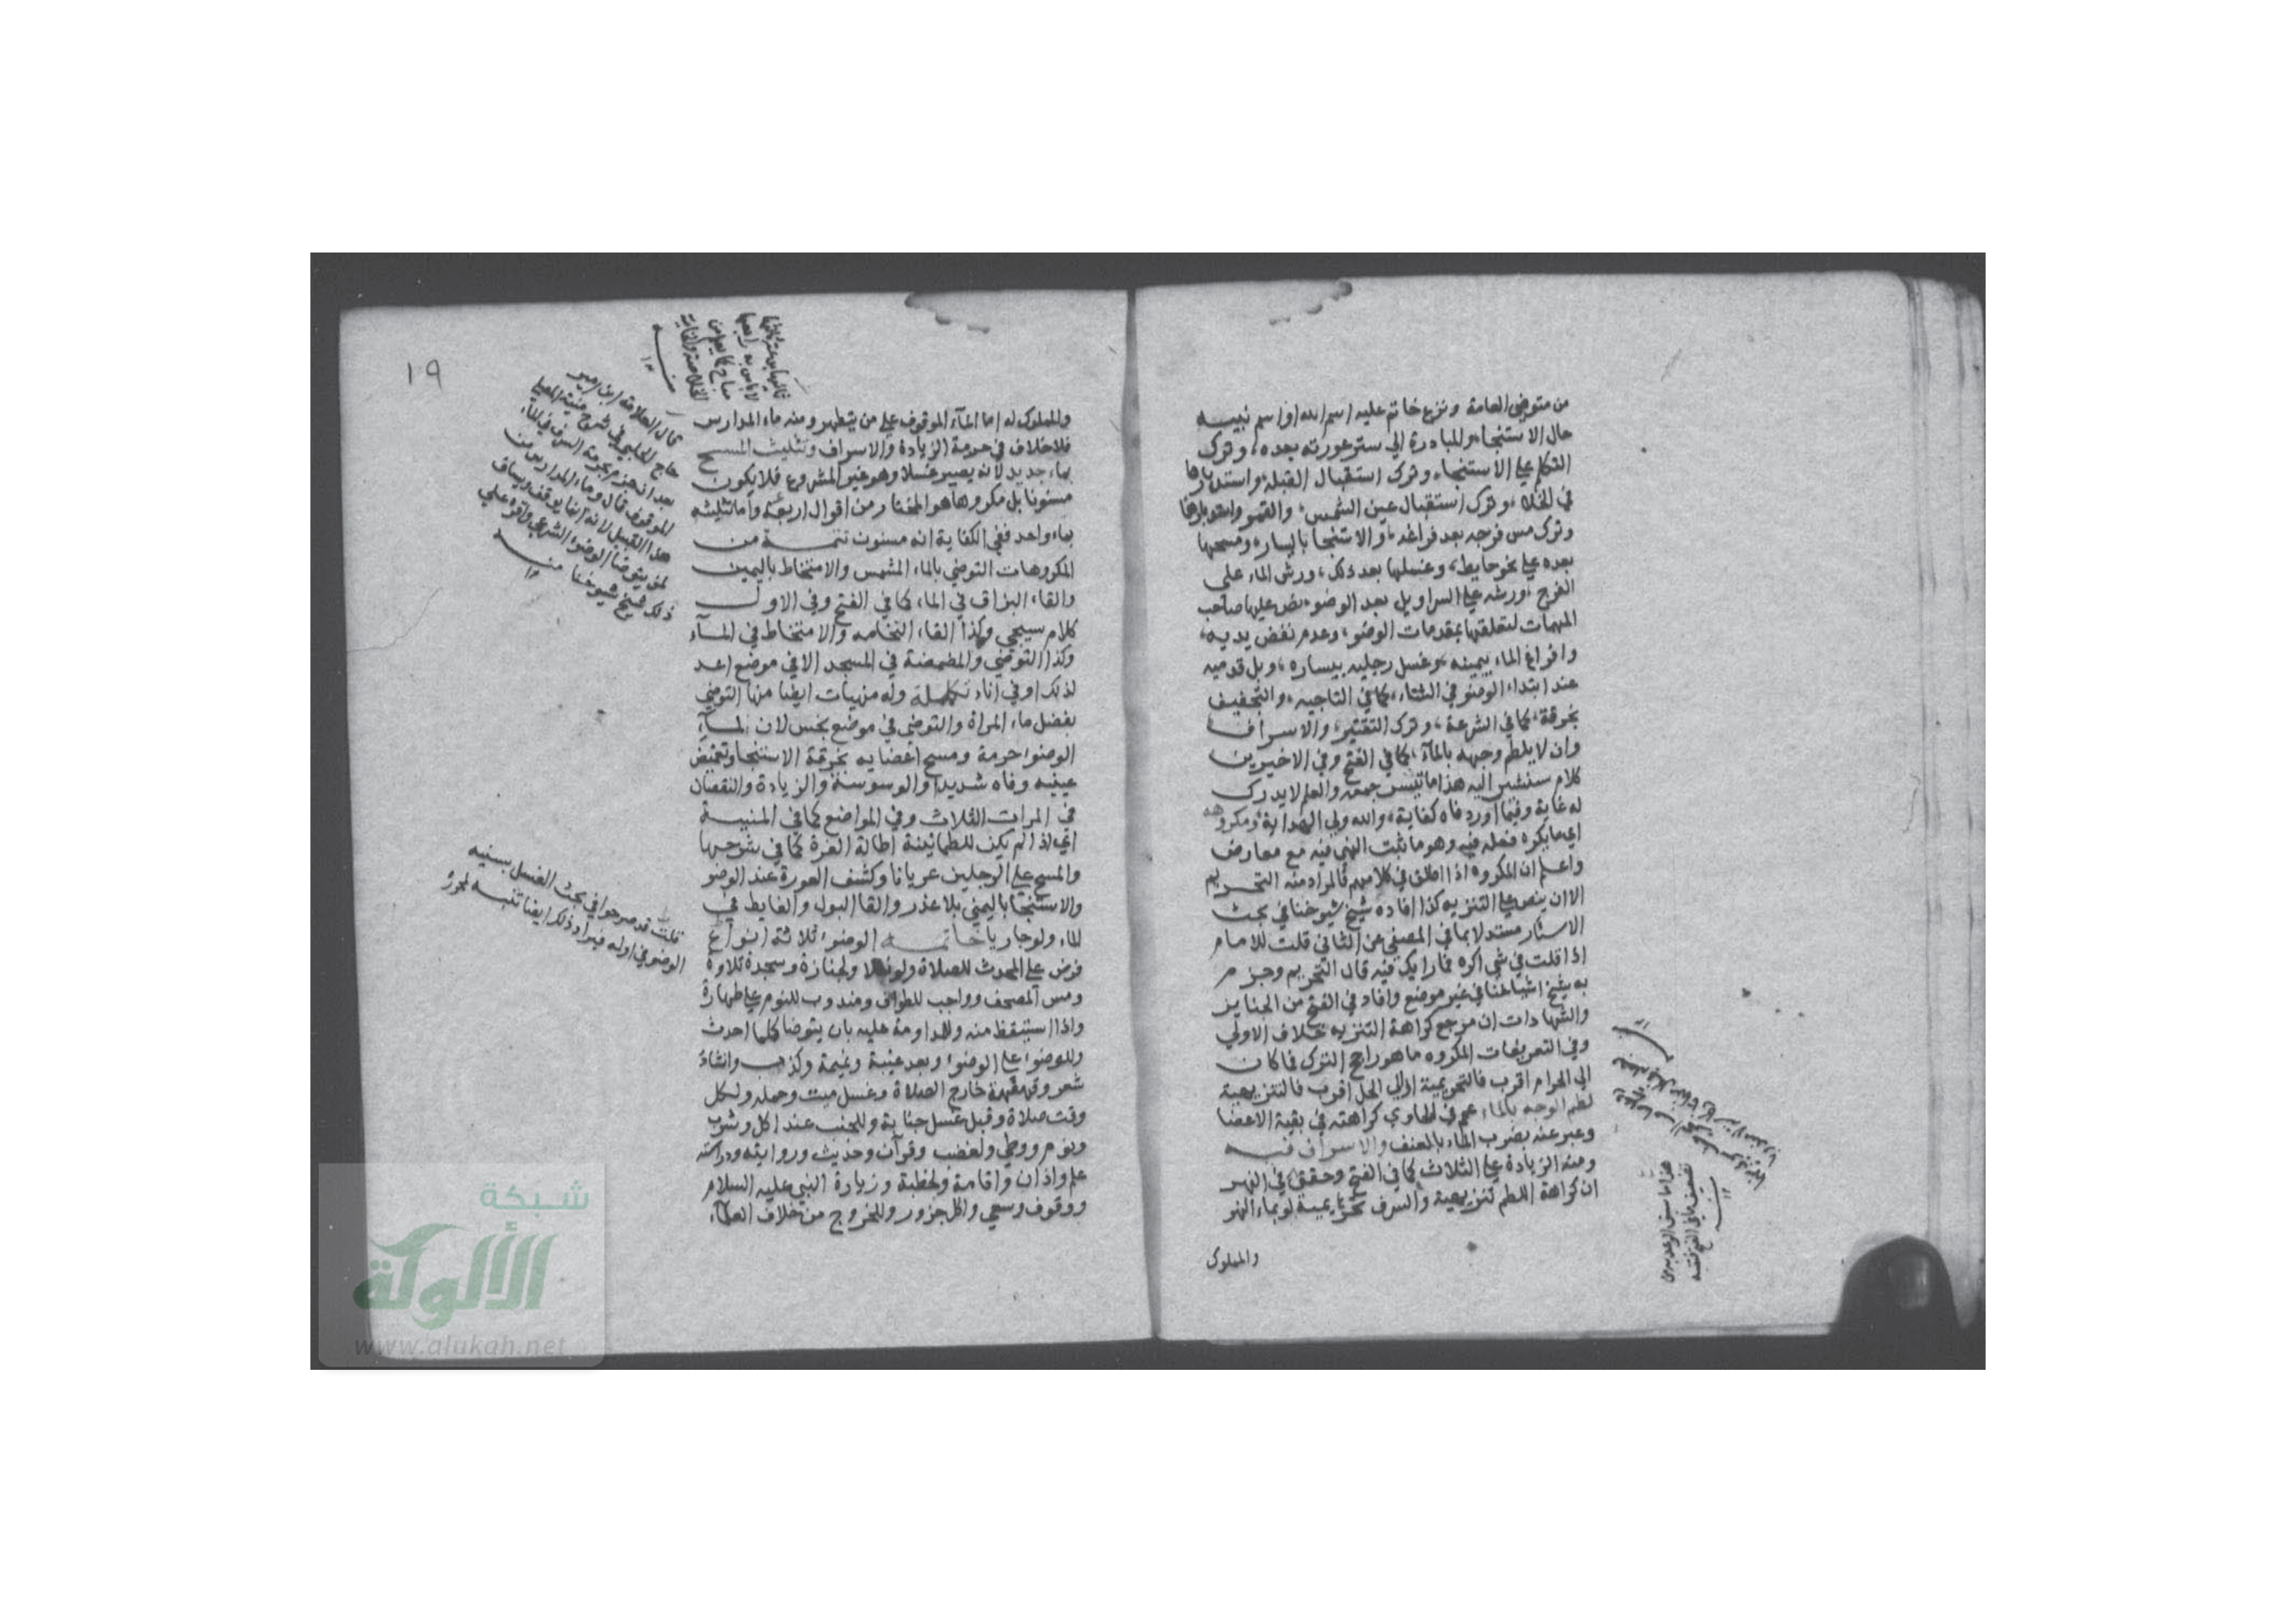 من متوضى العامة ونزع خاتم عليه اسم الله او اسم نبيه
حال الاستنجاء والمبادرة الي ستر عورته بعده، وترك
التكلم علي الاستنجاء وترك استقبال القبلة واستدبارها
في الخلاء وترك استقبال عين الشمس، والقمر واستدبارها
وترك مس فرجه بعد فراغه، والاستنجا باليسار، ومسحها
بعده علي نحو حايط، وغسلها بعد ذلك، ورش الماء على
الفرج، ورشه علي السراويل بعد الوضوء نص عليها صاحب
المهمات لتعلقها بمقدمات الوضوء، وعدم نفض يديه،
وافراغ الماء بيمينه وغسل رجليه بيساره، وبل قدميه
عند ابتداء الوضو في الشتاء، كما في التاجيه، والتجفيف
بخرقة، كما في الشرعة، وترك التقتير، والاسراف
وان لا يلطم وجهه بالمآء، كما في الفتح وفي الاخيرين
كلام سنشير اليه هذا ما تيسر جمعه والعلم لا يدرك
له غاية وفيما اورد فاه كفاية، والله ولي الهداية ومكروهه
اي ما يكره فعله فيه وهو ما ثبت النهي فيه مع معارض
واعلم ان المكروه اذا اطلق في كلامهم فالمراد منه التحريم
الا ان ينص علي التنزيه كذا افاده شيخ شيوخنا في بحث
الاسئار مستدلا بما في المصفى عن الثاني قلت للامام
اذا قلت في شي اكره فما رايك فيه قال التحريم وجزم
به شيخ اشياخنا في غير موضع وافاد في الفتح من الجنايز
والشهادات ان مرجع كراهة التنزيه خلاف الاولي
وفي التعريفات المكروه ما هو راجح الترك فما كان
الي الحرام اقرب فالتحريمية او الي الحل اقرب فالتنزيهية
لطم الوجه بالماء عم في الحاوي كراهته في بقية الاعضا
وعبر عنه بضرب الماء بالعنف والاسراف فيه
ومنه الزيادة علي الثلاث كما في الفتح وحقق في النهر
ان كراهة اللطم تنزيهية والسرف تحريمية لو بماء النهر
والمملوك
هذا ما سبق الوعد به من
١٩
والمملوك له اما المآء الموقوف علي من يتطهر ومنه ماء المدارس
فلا خلاف في حرمة الزيادة والاسراف وتثليث المسح
بماء جديد لانه يصير غسلا وهو غير المشروع فلا يكون
مسنونا بل مكروها هو المختار من اقوال اربعة واما تثليثه
بماء واحد ففي الكفاية انه مسنون تتمة من
المكروهات التوضي بالماء المشمس والامتخاط باليمين
والقاء البزاق في الماء كما في الفتح وفي الاول
كلام سيجي وكذا القاء النخامه والامتخاط في المآء
وكذا التوضي والمضمضة في المسجد الا في موضع اعد
لذلك او في اناء تكملة وله منهيات ايضا منها التوضي
بفضل ماء المراة والتوضى في موضع نجس لان لمآء
الوضوء حرمة ومسح اعضايه بخرقة الاستنجا وتغميض
عينيه وفاه شديدا والوسوسة والزيادة والنقصان
في المرات الثلاث وفي المواضع كما في المنيية
اي اذا لم يكن للطمانينة اطالة الغرة كما في شرحها
والمسح علي الرجلين عريانا وكشف العورة عند الوضو
والاستنجا باليمني بلا عذر والقا البول والغايط في
الماء ولو جاريا خاتمه الوضوء ثلاثة انواع
فرض علي المحدث للصلاة ولو نفلا ولجنازة وسجدة تلاوة
ومس المصحف وواجب للطواف ومندوب للنوم علي طهارة
واذا استيقظ منه وللمداومة عليه بان يتوضا كلما احدث
وللوضوء علي الوضوء وبعد غيبة ونميمة وكذب وانشاد
شعر وقهقهة خارج الصلاة وغسل ميت وحمله ولكل
وقت صلاة وقبل غسل جنابة وللجنب عند اكل وشرب
ونوم ووطي ولغضب وقرآن وحديث وروايته ودراسته
علم واذان واقامة وخطبة وزيارة النبي عليه السلام
ووقوف وسعي واكل جزور وللخروج من خلاف العلمآء
قال العلامة ابن امير
حاج الحلبي في شرح منية المصلي
بعد ان جزم بحرمة السرف في الماء
الموقوف قال وماء المدارس من
هذا القبيل لانه انما يوقف ويساق
لمن يتوضأ الوضوء الشرعي واقره علي
ذلك شيخ شيوخنا منه
١٢
قلت قد صرحوا في بحث الغسل بسنيه
الوضو في اوله فيزاد ذلك ايضا تنبه
شبكة
الألوكة
www.alukah.net